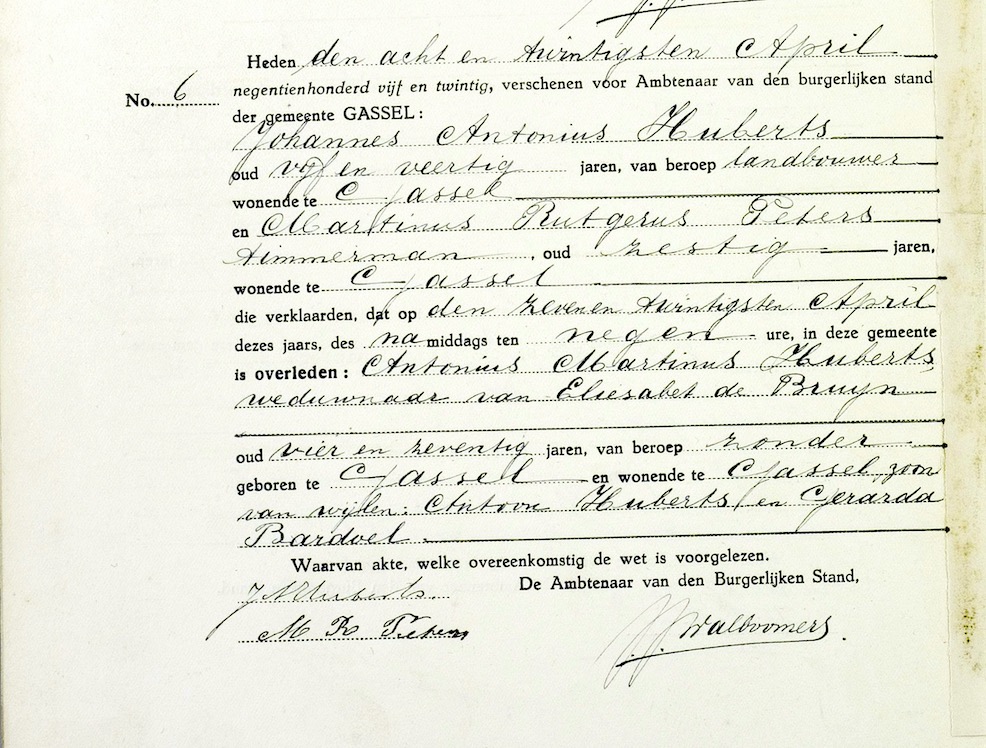 Heden den acht en twintigsten April
No. 6 negentienhonderd vijf en twintig, verschenen voor Ambtenaar van den burgerlijken stand
der gemeente GASSEL:
Johannes Antonius Huberts
oud vijf en veertig jaren, van beroep landbouwer
wonende te Gassel
en Martinus Rutgerus Peters
timmerman, oud zestig jaren,
wonende te Gassel
die verklaarden, dat op den zeven en twintigsten April
dezes jaars, des na middags ten negen ure, in deze gemeente
is overleden: Antonius Martinus Huberts,
weduwnaar van Eliesabet de Bruyn
oud vier en zeventig jaren, van beroep zonder
geboren te Gassel en wonende te Gassel, zoon
van wijlen: Antoon Huberts, en Gerarda
Bardoel.
Waarvan akte, welke overeenkomstig de wet is voorgelezen.
De Ambtenaar van den Burgerlijken Stand,
J A Huberts.
M R Peters
JJWalboomers.